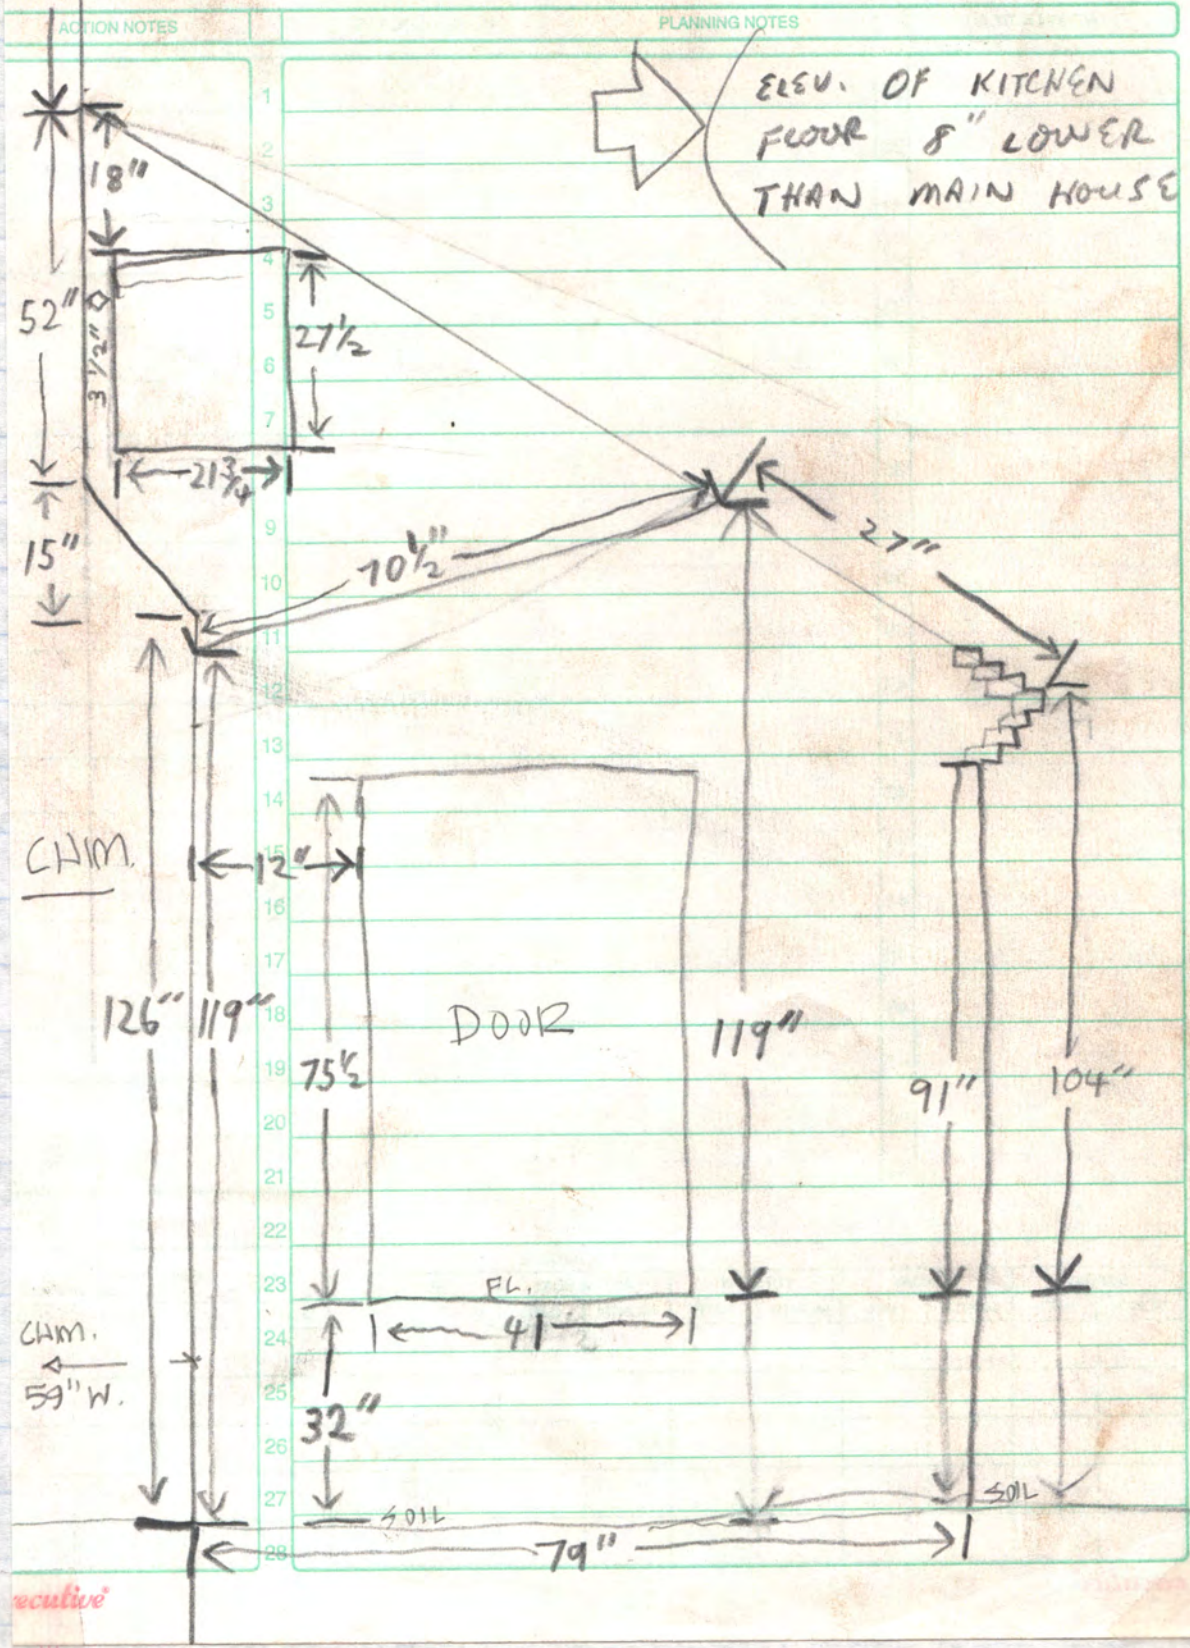 ACTION NOTES
PLANNING NOTES
ELEV. OF KITCHEN
FLOOR 8" LOWER
THAN MAIN HOUSE
1
2
3
4
5
6
7
9
10
11
12
13
14
15
16
17
18
19
20
21
22
23
24
25
26
27
28
18"
52"
3 1/2"
27 1/2
21 3/4
15"
70 1/2"
27"
CHIM.
12"
126"
119"
DOOR
75 1/2
119"
91"
104"
FL.
41
CHIM.
59" W.
32"
SOIL
SOIL
79"
ecutive®